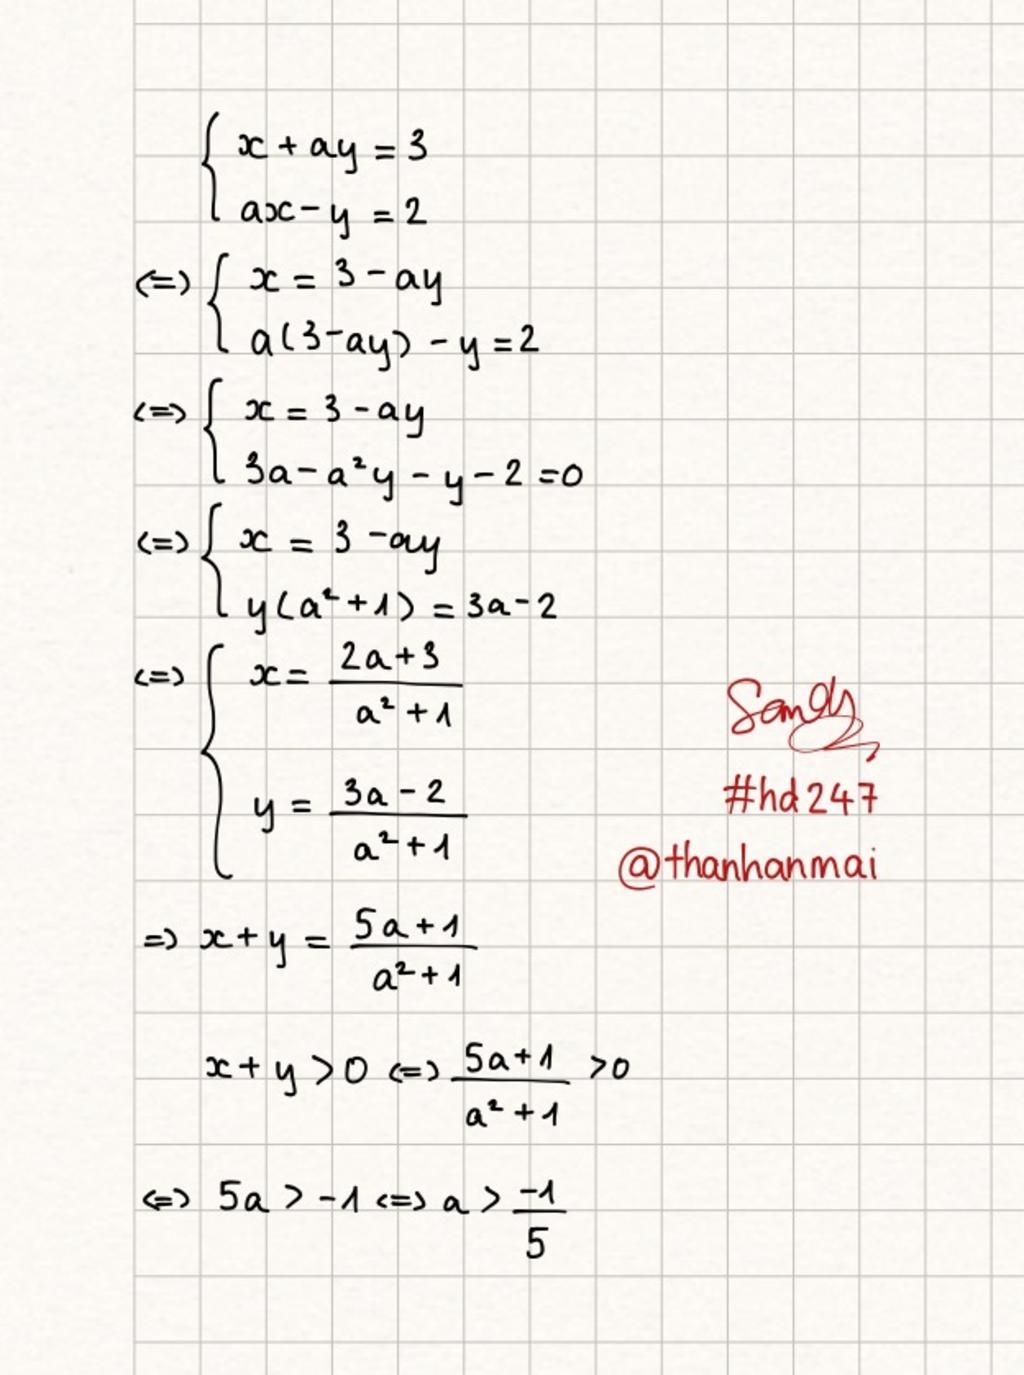 { x + ay = 3
ax - y = 2
<=> { x = 3 - ay
a(3-ay) - y = 2
<=> { x = 3 - ay
3a - a²y - y - 2 = 0
<=> { x = 3 - ay
y(a² + 1) = 3a - 2
<=> { x = (2a + 3)/(a² + 1)
y = (3a - 2)/(a² + 1)
Sandy
#hd247
@thanhanmai
=> x + y = (5a + 1)/(a² + 1)
x + y > 0 <=> (5a + 1)/(a² + 1) > 0
<=> 5a > -1 <=> a > -1/5